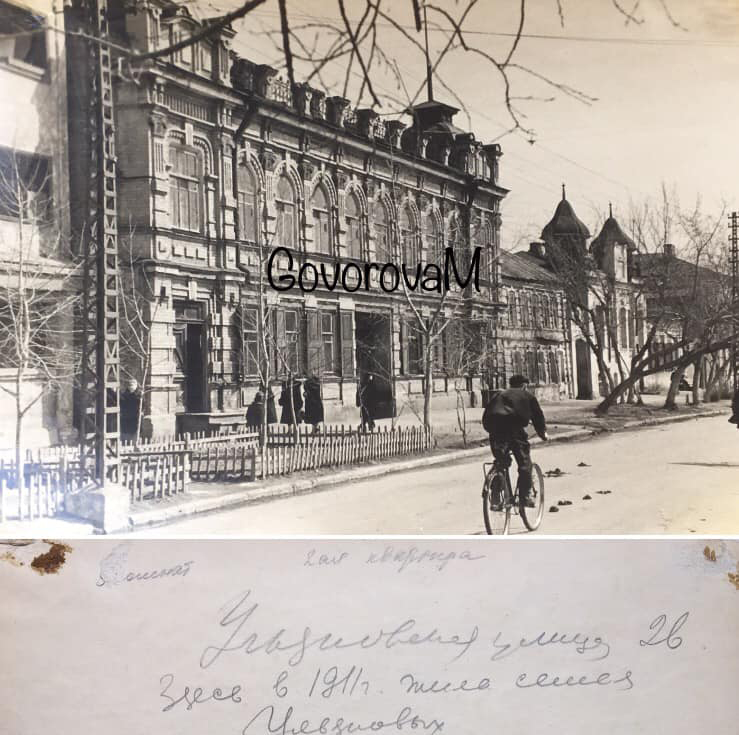 GovorovaM
комнат
2ая квартира
Ульяновская улица 26.
Здесь в 1911г. жила семья
Ульяновых